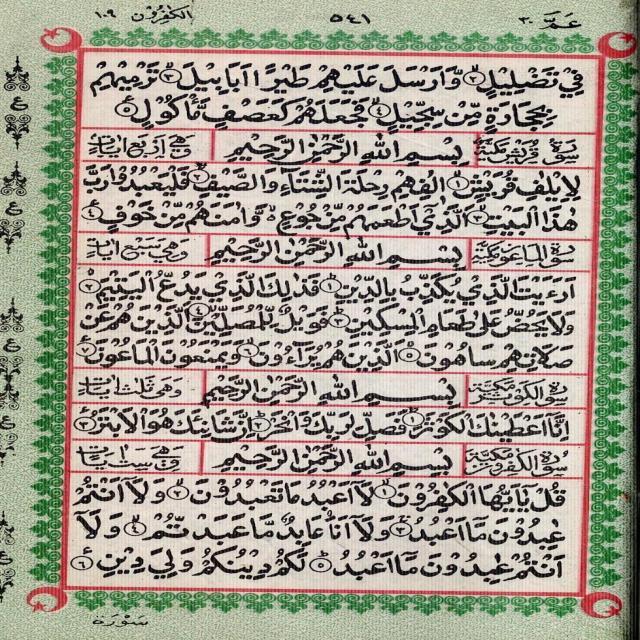 الكفرون ١٠٩ ٥٤١ عمّ ٣٠
فِيْ تَضْلِيْلٍ ۝٢ وَّاَرْسَلَ عَلَيْهِمْ طَيْرًا اَبَابِيْلَ ۝٣ تَرْمِيْهِمْ
بِحِجَارَةٍ مِّنْ سِجِّيْلٍ ۝٤ فَجَعَلَهُمْ كَعَصْفٍ مَّاْكُوْلٍ ۝٥
سورة قريش مكية بِسْمِ اللّٰهِ الرَّحْمٰنِ الرَّحِيْمِ وهى اربع ايات
لِاِيْلٰفِ قُرَيْشٍ ۝١ اٖلٰفِهِمْ رِحْلَةَ الشِّتَآءِ وَالصَّيْفِ ۝٢ فَلْيَعْبُدُوْا رَبَّ
هٰذَا الْبَيْتِ ۝٣ الَّذِيْٓ اَطْعَمَهُمْ مِّنْ جُوْعٍ ۙ وَّاٰمَنَهُمْ مِّنْ خَوْفٍ ۝٤
سورة الماعون مكية بِسْمِ اللّٰهِ الرَّحْمٰنِ الرَّحِيْمِ وهى سبع ايات
اَرَءَيْتَ الَّذِيْ يُكَذِّبُ بِالدِّيْنِ ۝١ فَذٰلِكَ الَّذِيْ يَدُعُّ الْيَتِيْمَ ۝٢
وَلَا يَحُضُّ عَلٰى طَعَامِ الْمِسْكِيْنِ ۝٣ فَوَيْلٌ لِّلْمُصَلِّيْنَ ۝٤ الَّذِيْنَ هُمْ عَنْ
صَلَاتِهِمْ سَاهُوْنَ ۝٥ الَّذِيْنَ هُمْ يُرَآءُوْنَ ۝٦ وَيَمْنَعُوْنَ الْمَاعُوْنَ ۝٧
سورة الكوثر مكية بِسْمِ اللّٰهِ الرَّحْمٰنِ الرَّحِيْمِ وهى ثلث ايات
اِنَّآ اَعْطَيْنٰكَ الْكَوْثَرَ ۝١ فَصَلِّ لِرَبِّكَ وَانْحَرْ ۝٢ اِنَّ شَانِئَكَ هُوَ الْاَبْتَرُ ۝٣
سورة الكفرون مكية بِسْمِ اللّٰهِ الرَّحْمٰنِ الرَّحِيْمِ وهى ست ايات
قُلْ يٰٓاَيُّهَا الْكٰفِرُوْنَ ۝١ لَآ اَعْبُدُ مَا تَعْبُدُوْنَ ۝٢ وَلَآ اَنْتُمْ
عٰبِدُوْنَ مَآ اَعْبُدُ ۝٣ وَلَآ اَنَا۠ عَابِدٌ مَّا عَبَدْتُّمْ ۝٤ وَلَآ
اَنْتُمْ عٰبِدُوْنَ مَآ اَعْبُدُ ۝٥ لَكُمْ دِيْنُكُمْ وَلِيَ دِيْنِ ۝٦
سورة